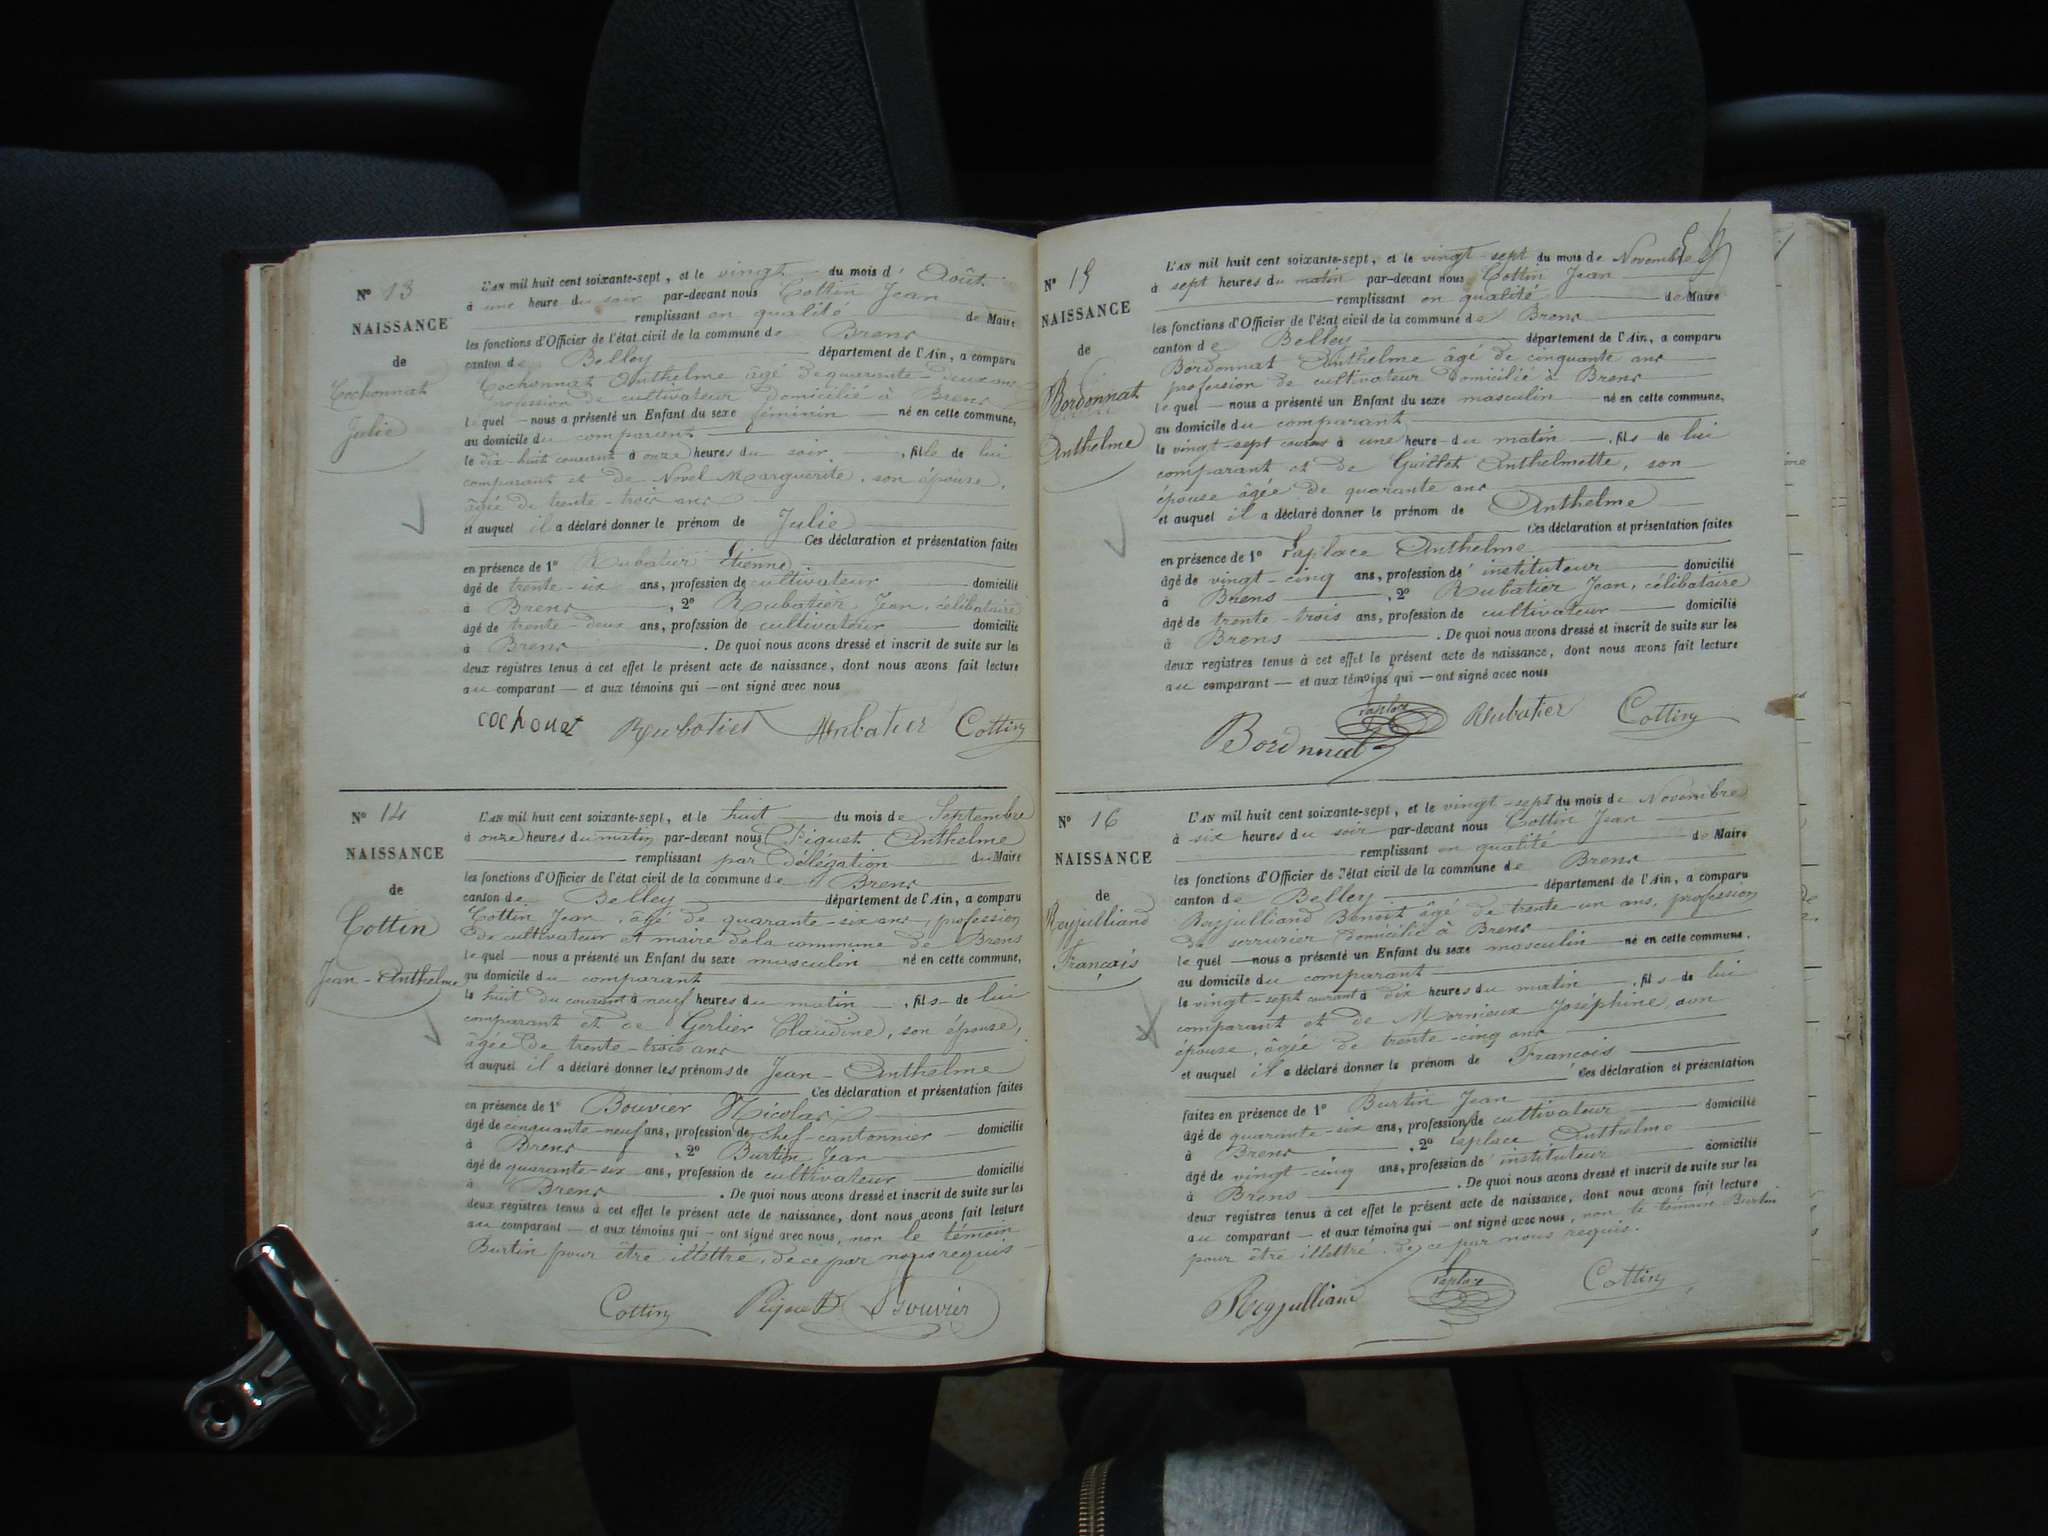 N° 13
NAISSANCE
de
Cochonnat
Julie
L'AN mil huit cent soixante-sept, et le vingt du mois d' Août
à une heure du soir par-devant nous Cottin Jean
remplissant en qualité de Maire
les fonctions d'Officier de l'état civil de la commune de Brens
canton de Belley département de l'Ain, a comparu
Cochonnat Anthelme âgé de quarante-deux ans
profession de cultivateur domicilié à Brens
lequel nous a présenté un Enfant du sexe féminin né en cette commune,
au domicile du comparant
le dix-huit courant à onze heures du soir, fille de lui
comparant et de Novel Marguerite, son épouse,
âgée de trente-trois ans
et auquel il a déclaré donner le prénom de Julie
Ces déclaration et présentation faites
en présence de 1° Rubatier Etienne
âgé de trente-six ans, profession de cultivateur domicilié
à Brens, 2° Rubatier Jean, célibataire
âgé de trente-deux ans, profession de cultivateur domicilié
à Brens. De quoi nous avons dressé et inscrit de suite sur les
deux registres tenus à cet effet le présent acte de naissance, dont nous avons fait lecture
au comparant — et aux témoins qui — ont signé avec nous
cochonat Rubatier Rubatier Cottin
N° 14
NAISSANCE
de
Cottin
Jean-Anthelme
L'AN mil huit cent soixante-sept, et le huit du mois de Septembre
à onze heures du matin par-devant nous Piquet Anthelme
remplissant par délégation du Maire
les fonctions d'Officier de l'état civil de la commune de Brens
canton de Belley département de l'Ain, a comparu
Cottin Jean, âgé de quarante-six ans, profession
de cultivateur et maire de la commune de Brens
lequel — nous a présenté un Enfant du sexe masculin né en cette commune,
au domicile du comparant
le huit du courant à neuf heures du matin, fils de lui
comparant et de Gerlier Claudine, son épouse,
âgée de trente-trois ans
et auquel il a déclaré donner les prénoms de Jean-Anthelme
Ces déclaration et présentation faites
en présence de 1° Bouvier Nicolas
âgé de cinquante-neuf ans, profession de chef-cantonnier domicilié
à Brens, 2° Burtin Jean
âgé de quarante-six ans, profession de cultivateur domicilié
à Brens. De quoi nous avons dressé et inscrit de suite sur les
deux registres tenus à cet effet le présent acte de naissance, dont nous avons fait lecture
au comparant — et aux témoins qui — ont signé avec nous, non le témoin
Burtin pour être illettré, de ce par nous requis
Cottin Piquet Bouvier
N° 15
NAISSANCE
de
Bordonnat
Anthelme
L'AN mil huit cent soixante-sept, et le vingt-sept du mois de Novembre
à sept heures du matin par-devant nous Cottin Jean
remplissant en qualité de Maire
les fonctions d'Officier de l'état civil de la commune de Brens
canton de Belley département de l'Ain, a comparu
Bordonnat Anthelme âgé de cinquante ans
profession de cultivateur domicilié à Brens
lequel — nous a présenté un Enfant du sexe masculin né en cette commune,
au domicile du comparant
le vingt-sept courant à une heure du matin, fils de lui
comparant et de Guillet Anthelmette, son
épouse âgée de quarante ans
et auquel il a déclaré donner le prénom de Anthelme
Ces déclaration et présentation faites
en présence de 1° Laplace Anthelme
âgé de vingt-cinq ans, profession d'instituteur domicilié
à Brens, 2° Rubatier Jean, célibataire
âgé de trente-trois ans, profession de cultivateur domicilié
à Brens. De quoi nous avons dressé et inscrit de suite sur les
deux registres tenus à cet effet le présent acte de naissance, dont nous avons fait lecture
au comparant — et aux témoins qui — ont signé avec nous
Bordonnat Laplace Rubatier Cottin
N° 16
NAISSANCE
de
Reyjulliand
Français
L'AN mil huit cent soixante-sept, et le vingt-sept du mois de Novembre
à six heures du soir par-devant nous Cottin Jean
remplissant en qualité de Maire
les fonctions d'Officier de l'état civil de la commune de Brens
canton de Belley département de l'Ain, a comparu
Reyjulliand Benoit âgé de trente-un ans, profession
de serrurier domicilié à Brens
lequel — nous a présenté un Enfant du sexe masculin né en cette commune,
au domicile du comparant
le vingt-sept courant à dix heures du matin, fils de lui
comparant et de Mornieux Joséphine, son
épouse, âgée de trente-cinq ans
et auquel il a déclaré donner le prénom de François
Ces déclaration et présentation
faites en présence de 1° Burtin Jean
âgé de quarante-six ans, profession de cultivateur domicilié
à Brens, 2° Laplace Anthelme
âgé de vingt-cinq ans, profession d'instituteur domicilié
à Brens. De quoi nous avons dressé et inscrit de suite sur les
deux registres tenus à cet effet le présent acte de naissance, dont nous avons fait lecture
au comparant — et aux témoins qui — ont signé avec nous, non le témoin Burtin
pour être illettré, de ce par nous requis.
Reyjulliand Laplace Cottin